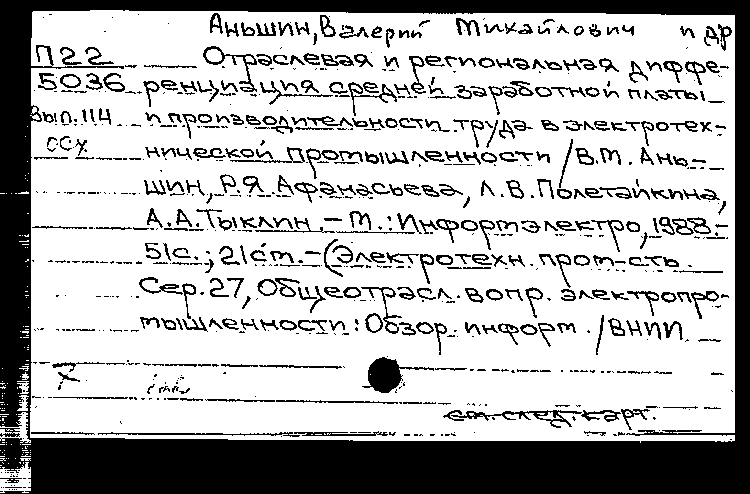 Аньшин, Валерий Михайлович и др
П22 Отраслевая и региональная диффе-
5036 ренциация средней заработной платы
Вып.114 и производительности труда в электротех-
ССХ нической промышленности / В.М. Ань-
шин, Р.Я Афанасьева, Л.В. Полетайкина,
А.А. Тыклин. – М.: Информэлектро, 1988.-
51с.; 21см. – (Электротехн. пром-сть.
Сер. 27, Общеотрасл. вопр. электропро-
мышленности: Обзор. информ. / ВНИИ
см. след. карт.